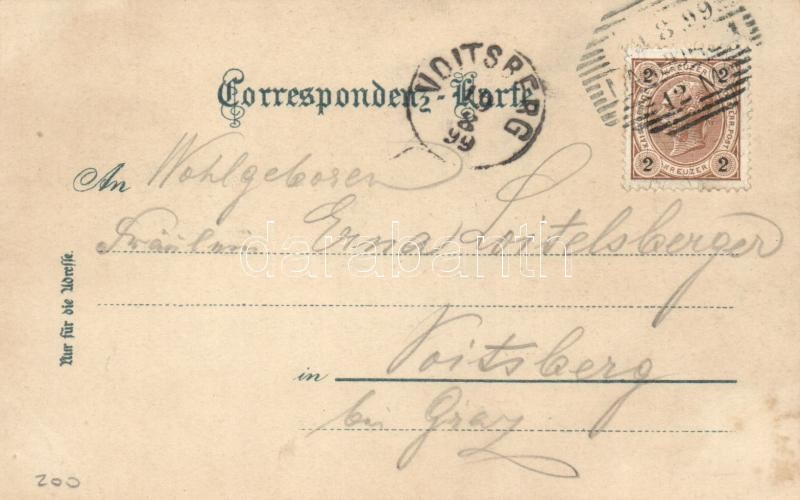 8 99
12
2 2
KREUZER
2 2
VOITSBERG
8
99
Correspondenz-Karte
An Wohlgeboren
Fräulein Erna
darabanth
in Voitsberg
bei Graz
Nur für die Adresse.
200